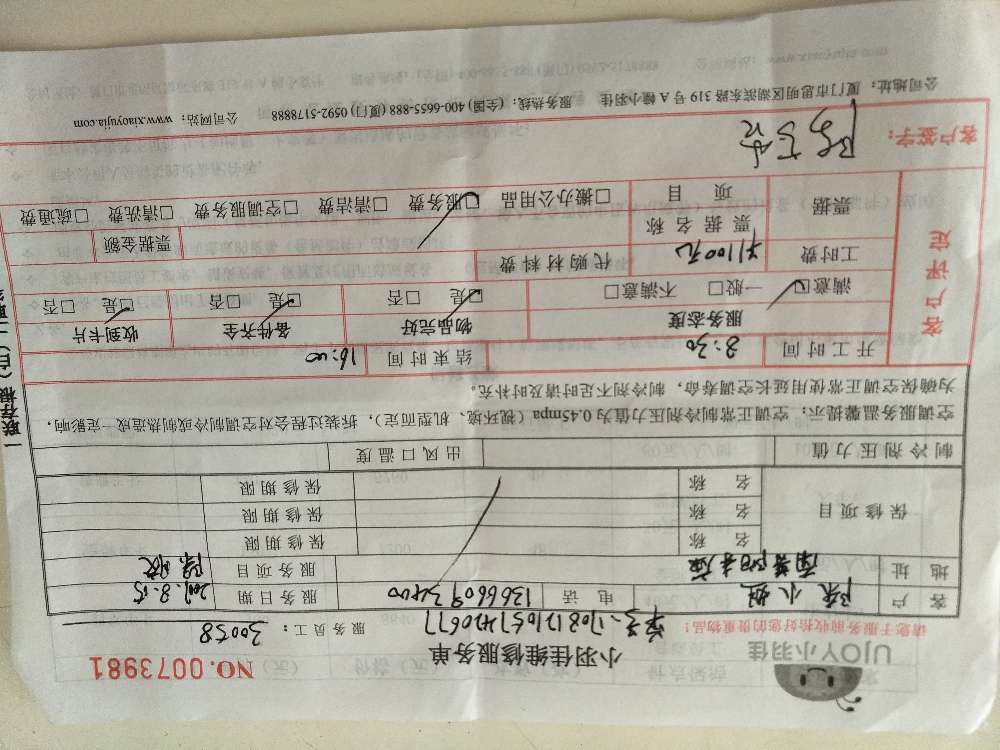 UJOY小羽佳
请您于服务前收拾好您的贵重物品!
小羽佳维修服务单
NO. 0073981
单号:1708121051420677
服务员工: 30058
客户 陈小姐 电话 13666093400 服务日期 2017.8.15
地址 服务项目
保修项目 名称 保修期限
名称 保修期限
名称 保修期限
制冷剂压力值 出风口温度
空调服务温馨提示:空调正常制冷剂压力值为0.45mpa(视环境、机型而定),拆装过程会对空调制冷或制热造成一定影响,
为确保空调正常使用延长空调寿命,制冷剂不足时请及时补充。
客户评定
开工时间 8:30 结束时间 16:00
服务态度 物品完好 备件齐全 收到卡片
满意☑ 一般□ 不满意□ ☑是 □否 ☑是 □否 ☑是 □否
工时费 ¥1100元 代购材料费
票据 票据名称 票据金额
项目 □搬办公用品 ☑服务费 □清洁费 □空调服务费 □清洗费 □疏通费
客户签字:
公司地址:厦门市思明区湖滨东路319号A幢小羽佳 服务热线:(全国) 400-6655-888 (厦门) 0592-5178888 公司网站:www.xiaoyujia.com
一联存根(白)